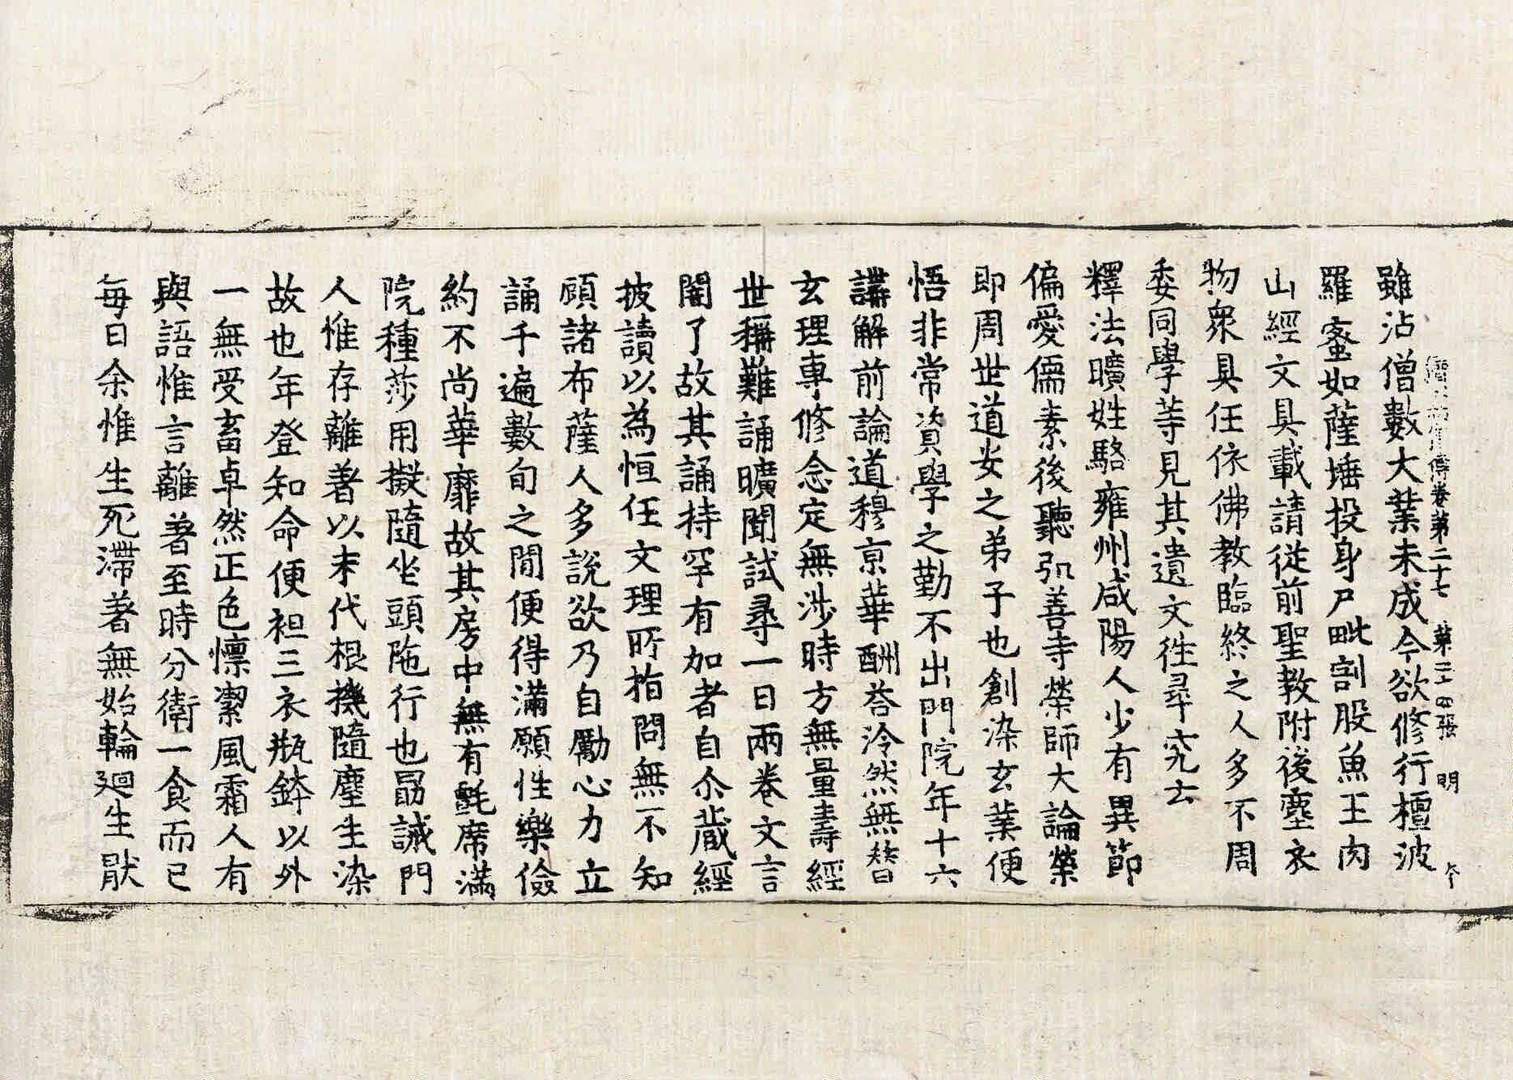 雖沾僧數大業未成今欲修行檀波
傳卷第二十七 第三十四張 明
羅蜜如薩埵投身尸毗割股魚王肉
山經文具載請從前聖教附後塵衣
物衆具任依佛教臨終之人多不周
委同學等見其遺文往尋究云
釋法曠姓駱雍州咸陽人少有異節
偏愛儒素後聽弘善寺榮師大論榮
即周世道安之弟子也創染玄業便
悟非常資學之勤不出門院年十六
講解前論道穆京華酬荅泠然無替
玄理專修念定無涉時方無量壽經
世稱難誦曠聞試尋一日兩卷文言
闇了故其誦持罕有加者自尒藏經
披讀以為恒任文理所指問無不知
顧諸布薩人多說欲乃自勵心力立
誦千遍數旬之間便得滿願性樂儉
約不尚華靡故其房中無有氈席滿
院種莎用擬隨坐頭陁行也勗誡門
人惟存離著以末代根機隨塵生染
故也年登知命便袒三衣瓶鉢以外
一無受畜卓然正色懍潔風霜人有
與語惟言離著至時分衛一食而已
每日余惟生死滯著無始輪迴生猒